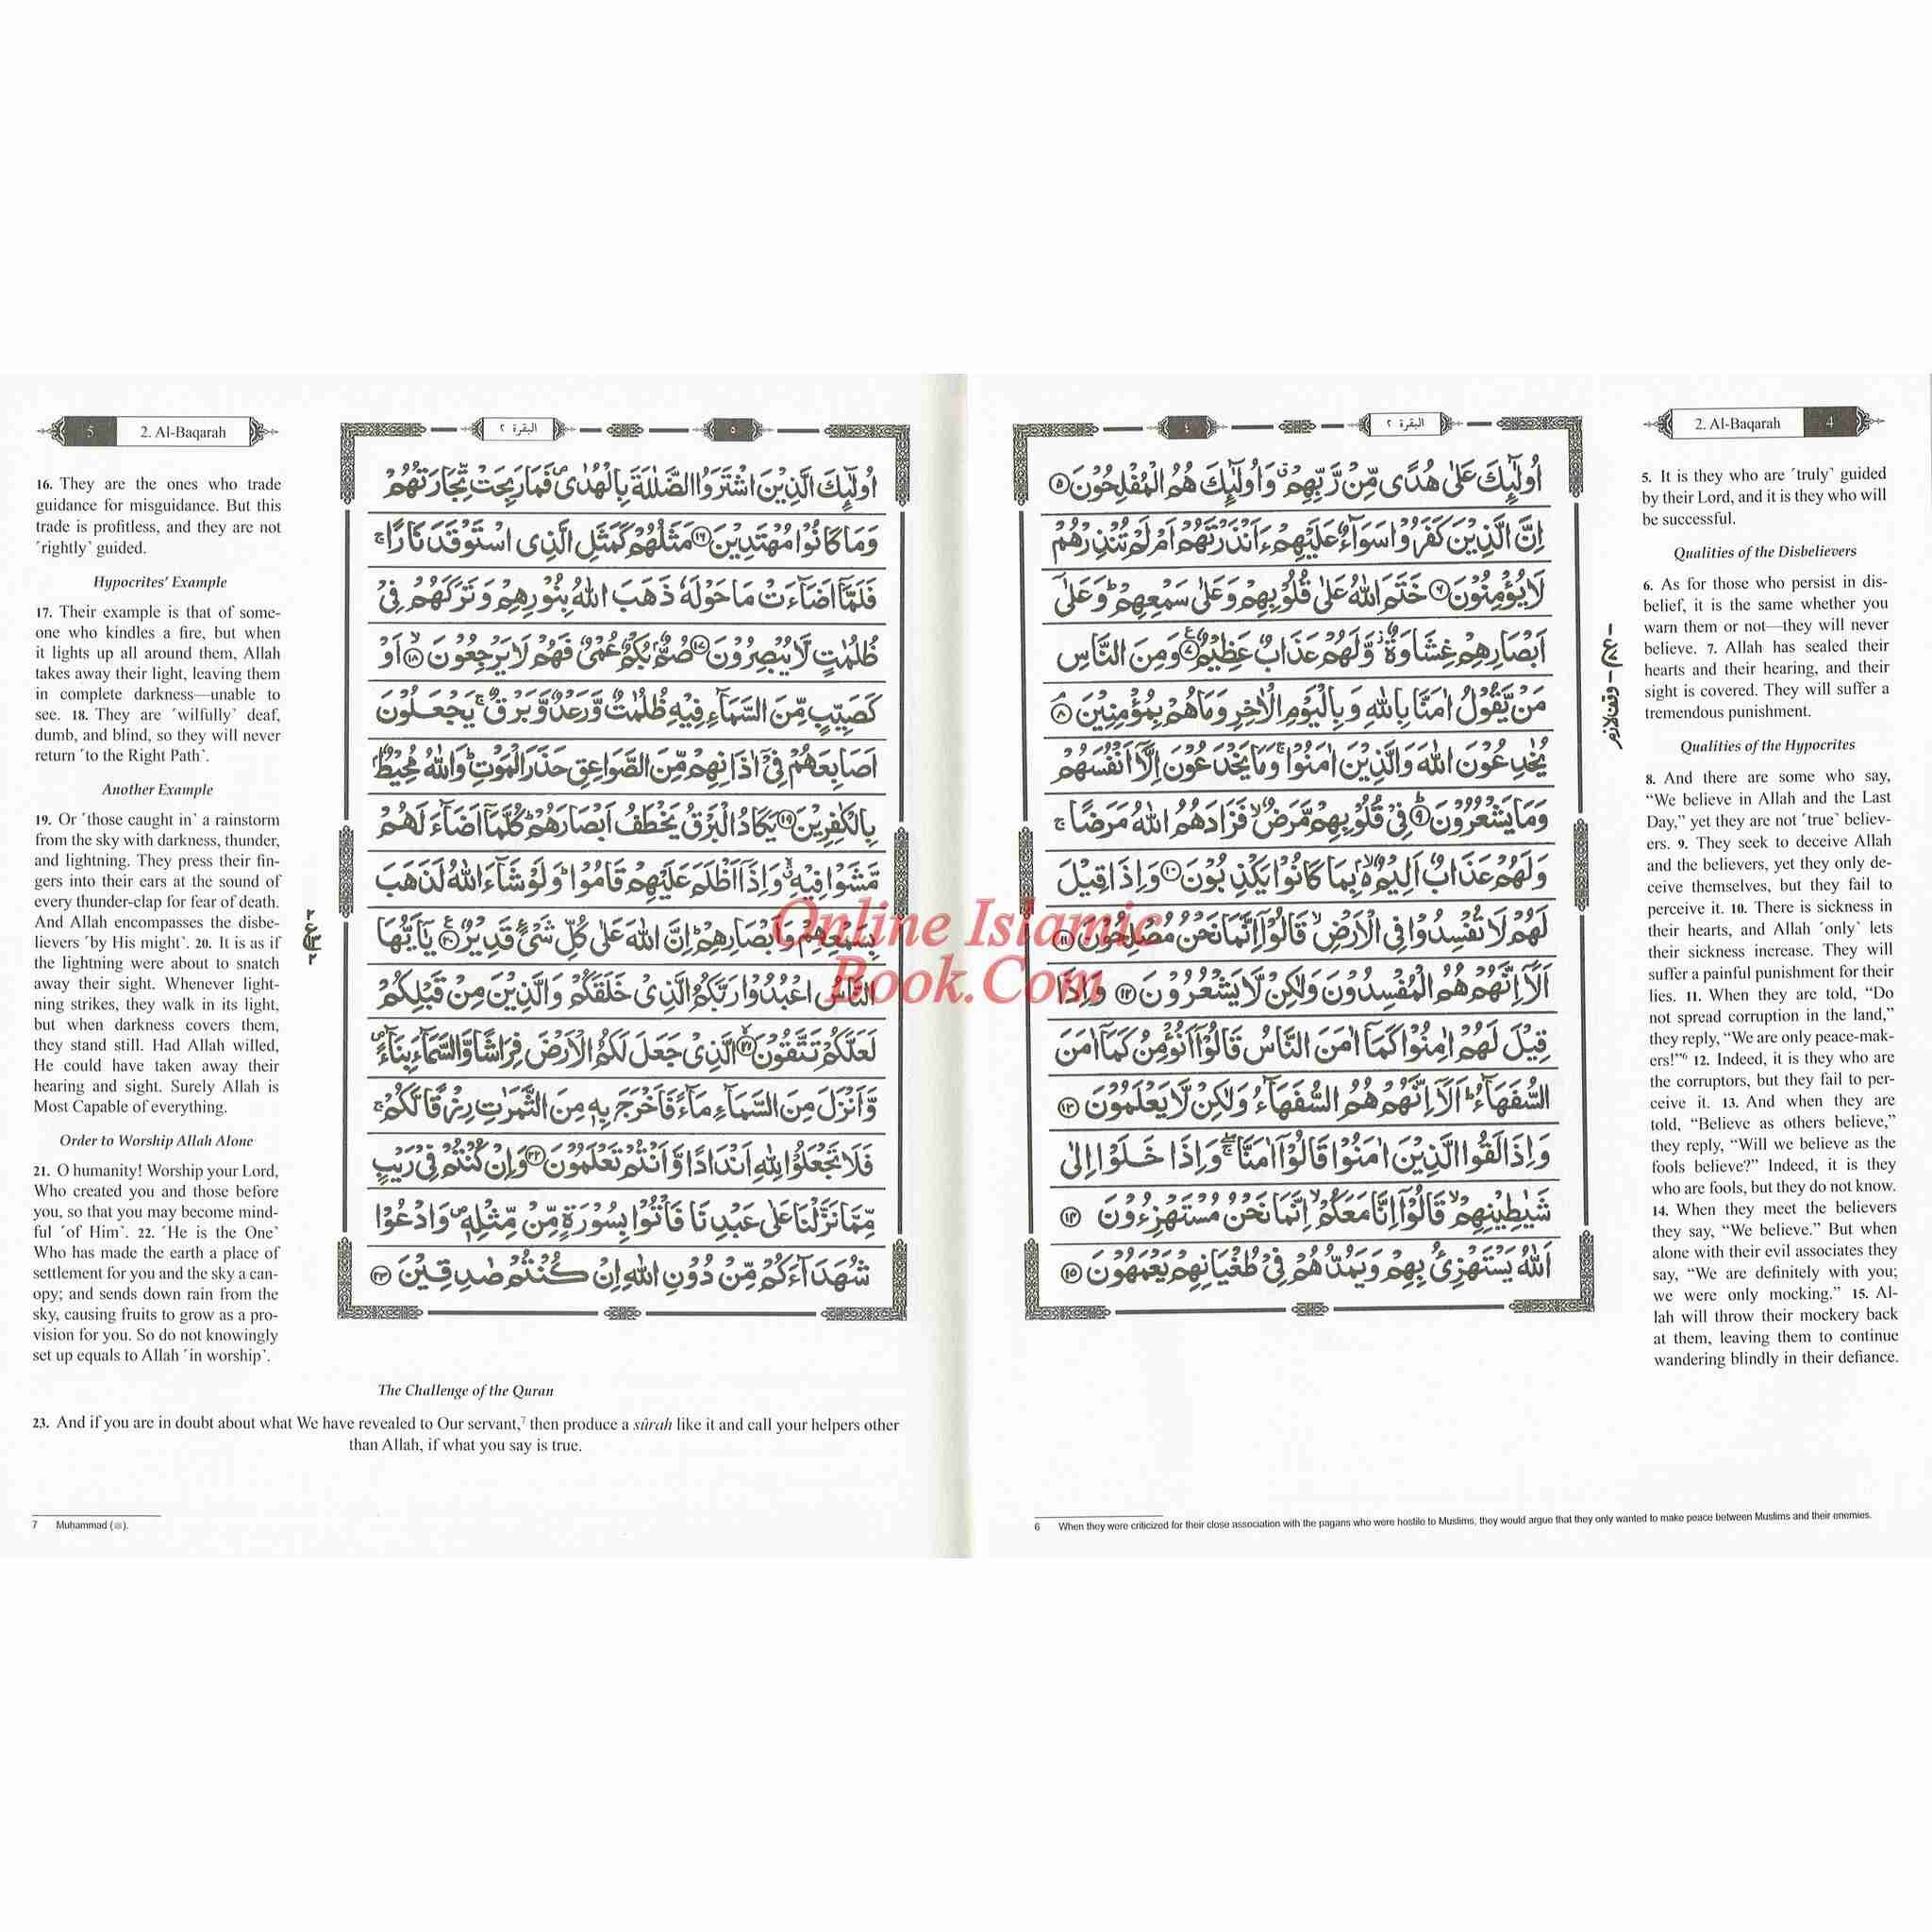 2. Al-Baqarah 4
البقرة ٢
٤
اُولٰٓئِكَ عَلٰى هُدًى مِّنْ رَّبِّهِمْ ۗ وَاُولٰٓئِكَ هُمُ الْمُفْلِحُوْنَ ۝٥
اِنَّ الَّذِيْنَ كَفَرُوْا سَوَآءٌ عَلَيْهِمْ ءَاَنْذَرْتَهُمْ اَمْ لَمْ تُنْذِرْهُمْ
لَا يُؤْمِنُوْنَ ۝٦ خَتَمَ اللّٰهُ عَلٰى قُلُوْبِهِمْ وَعَلٰى سَمْعِهِمْ ؕ وَعَلٰٓى
اَبْصَارِهِمْ غِشَاوَةٌ ؗ وَّلَهُمْ عَذَابٌ عَظِيْمٌ ۝٧ وَمِنَ النَّاسِ
مَنْ يَّقُوْلُ اٰمَنَّا بِاللّٰهِ وَبِالْيَوْمِ الْاٰخِرِ وَمَا هُمْ بِمُؤْمِنِيْنَ ۝٨
يُخٰدِعُوْنَ اللّٰهَ وَالَّذِيْنَ اٰمَنُوْا ۚ وَمَا يَخْدَعُوْنَ اِلَّاۤ اَنْفُسَهُمْ
وَمَا يَشْعُرُوْنَ ۝٩ فِيْ قُلُوْبِهِمْ مَّرَضٌ ۙ فَزَادَهُمُ اللّٰهُ مَرَضًا ۚ
وَلَهُمْ عَذَابٌ اَلِيْمٌۢ ۙ بِمَا كَانُوْا يَكْذِبُوْنَ ۝١٠ وَاِذَا قِيْلَ
لَهُمْ لَا تُفْسِدُوْا فِى الْاَرْضِ ۙ قَالُوْۤا اِنَّمَا نَحْنُ مُصْلِحُوْنَ ۝١١
اَلَاۤ اِنَّهُمْ هُمُ الْمُفْسِدُوْنَ وَلٰكِنْ لَّا يَشْعُرُوْنَ ۝١٢ وَاِذَا
قِيْلَ لَهُمْ اٰمِنُوْا كَمَاۤ اٰمَنَ النَّاسُ قَالُوْۤا اَنُؤْمِنُ كَمَاۤ اٰمَنَ
السُّفَهَآءُ ؕ اَلَاۤ اِنَّهُمْ هُمُ السُّفَهَآءُ وَلٰكِنْ لَّا يَعْلَمُوْنَ ۝١٣
وَاِذَا لَقُوا الَّذِيْنَ اٰمَنُوْا قَالُوْۤا اٰمَنَّا ۖۚ وَاِذَا خَلَوْا اِلٰى
شَيٰطِيْنِهِمْ ۙ قَالُوْۤا اِنَّا مَعَكُمْ ۙ اِنَّمَا نَحْنُ مُسْتَهْزِءُوْنَ ۝١٤
اَللّٰهُ يَسْتَهْزِئُ بِهِمْ وَيَمُدُّهُمْ فِيْ طُغْيَانِهِمْ يَعْمَهُوْنَ ۝١٥
وقف لازم
5. It is they who are ˹truly˺ guided
by their Lord, and it is they who will
be successful.
Qualities of the Disbelievers
6. As for those who persist in dis-
belief, it is the same whether you
warn them or not—they will never
believe. 7. Allah has sealed their
hearts and their hearing, and their
sight is covered. They will suffer a
tremendous punishment.
Qualities of the Hypocrites
8. And there are some who say,
“We believe in Allah and the Last
Day,” yet they are not ˹true˺ believ-
ers. 9. They seek to deceive Allah
and the believers, yet they only de-
ceive themselves, but they fail to
perceive it. 10. There is sickness in
their hearts, and Allah ˹only˺ lets
their sickness increase. They will
suffer a painful punishment for their
lies. 11. When they are told, “Do
not spread corruption in the land,”
they reply, “We are only peace-mak-
ers!”⁶ 12. Indeed, it is they who are
the corruptors, but they fail to per-
ceive it. 13. And when they are
told, “Believe as others believe,”
they reply, “Will we believe as the
fools believe?” Indeed, it is they
who are fools, but they do not know.
14. When they meet the believers
they say, “We believe.” But when
alone with their evil associates they
say, “We are definitely with you;
we were only mocking.” 15. Al-
lah will throw their mockery back
at them, leaving them to continue
wandering blindly in their defiance.
6 When they were criticized for their close association with the pagans who were hostile to Muslims, they would argue that they only wanted to make peace between Muslims and their enemies.
5 2. Al-Baqarah
٥
البقرة ٢
اُولٰٓئِكَ الَّذِيْنَ اشْتَرَوُا الضَّلٰلَةَ بِالْهُدٰى ۪ فَمَا رَبِحَتْ تِّجَارَتُهُمْ
وَمَا كَانُوْا مُهْتَدِيْنَ ۝١٦ مَثَلُهُمْ كَمَثَلِ الَّذِى اسْتَوْقَدَ نَارًا ۚ
فَلَمَّاۤ اَضَآءَتْ مَا حَوْلَهٗ ذَهَبَ اللّٰهُ بِنُوْرِهِمْ وَتَرَكَهُمْ فِيْ
ظُلُمٰتٍ لَّا يُبْصِرُوْنَ ۝١٧ صُمٌّۢ بُكْمٌ عُمْيٌ فَهُمْ لَا يَرْجِعُوْنَ ۝١٨ ۙ اَوْ
كَصَيِّبٍ مِّنَ السَّمَآءِ فِيْهِ ظُلُمٰتٌ وَّرَعْدٌ وَّبَرْقٌ ۚ يَجْعَلُوْنَ
اَصَابِعَهُمْ فِيْۤ اٰذَانِهِمْ مِّنَ الصَّوَاعِقِ حَذَرَ الْمَوْتِ ؕ وَاللّٰهُ مُحِيْطٌۢ
بِالْكٰفِرِيْنَ ۝١٩ يَكَادُ الْبَرْقُ يَخْطَفُ اَبْصَارَهُمْ ؕ كُلَّمَاۤ اَضَآءَ لَهُمْ
مَّشَوْا فِيْهِ ۙ وَاِذَاۤ اَظْلَمَ عَلَيْهِمْ قَامُوْا ؕ وَلَوْ شَآءَ اللّٰهُ لَذَهَبَ
بِسَمْعِهِمْ وَاَبْصَارِهِمْ ؕ اِنَّ اللّٰهَ عَلٰى كُلِّ شَىْءٍ قَدِيْرٌ ۝٢٠ يٰۤاَيُّهَا
النَّاسُ اعْبُدُوْا رَبَّكُمُ الَّذِيْ خَلَقَكُمْ وَالَّذِيْنَ مِنْ قَبْلِكُمْ
لَعَلَّكُمْ تَتَّقُوْنَ ۝٢١ ۙ الَّذِيْ جَعَلَ لَكُمُ الْاَرْضَ فِرَاشًا وَّالسَّمَآءَ بِنَآءً ۪
وَّاَنْزَلَ مِنَ السَّمَآءِ مَآءً فَاَخْرَجَ بِهٖ مِنَ الثَّمَرٰتِ رِزْقًا لَّكُمْ ۚ
فَلَا تَجْعَلُوْا لِلّٰهِ اَنْدَادًا وَّاَنْتُمْ تَعْلَمُوْنَ ۝٢٢ وَاِنْ كُنْتُمْ فِيْ رَيْبٍ
مِّمَّا نَزَّلْنَا عَلٰى عَبْدِنَا فَاْتُوْا بِسُوْرَةٍ مِّنْ مِّثْلِهٖ ۪ وَادْعُوْا
شُهَدَآءَكُمْ مِّنْ دُوْنِ اللّٰهِ اِنْ كُنْتُمْ صٰدِقِيْنَ ۝٢٣
16. They are the ones who trade
guidance for misguidance. But this
trade is profitless, and they are not
˹rightly˺ guided.
Hypocrites’ Example
17. Their example is that of some-
one who kindles a fire, but when
it lights up all around them, Allah
takes away their light, leaving them
in complete darkness—unable to
see. 18. They are ˹wilfully˺ deaf,
dumb, and blind, so they will never
return ˹to the Right Path˺.
Another Example
19. Or ˹those caught in˺ a rainstorm
from the sky with darkness, thunder,
and lightning. They press their fin-
gers into their ears at the sound of
every thunder-clap for fear of death.
And Allah encompasses the disbe-
lievers ˹by His might˺. 20. It is as if
the lightning were about to snatch
away their sight. Whenever light-
ning strikes, they walk in its light,
but when darkness covers them,
they stand still. Had Allah willed,
He could have taken away their
hearing and sight. Surely Allah is
Most Capable of everything.
Order to Worship Allah Alone
21. O humanity! Worship your Lord,
Who created you and those before
you, so that you may become mind-
ful ˹of Him˺. 22. ˹He is the One˺
Who has made the earth a place of
settlement for you and the sky a can-
opy; and sends down rain from the
sky, causing fruits to grow as a pro-
vision for you. So do not knowingly
set up equals to Allah ˹in worship˺.
The Challenge of the Quran
23. And if you are in doubt about what We have revealed to Our servant,⁷ then produce a sûrah like it and call your helpers other
than Allah, if what you say is true.
7 Muḥammad (ﷺ).
Online Islamic
Book.Com